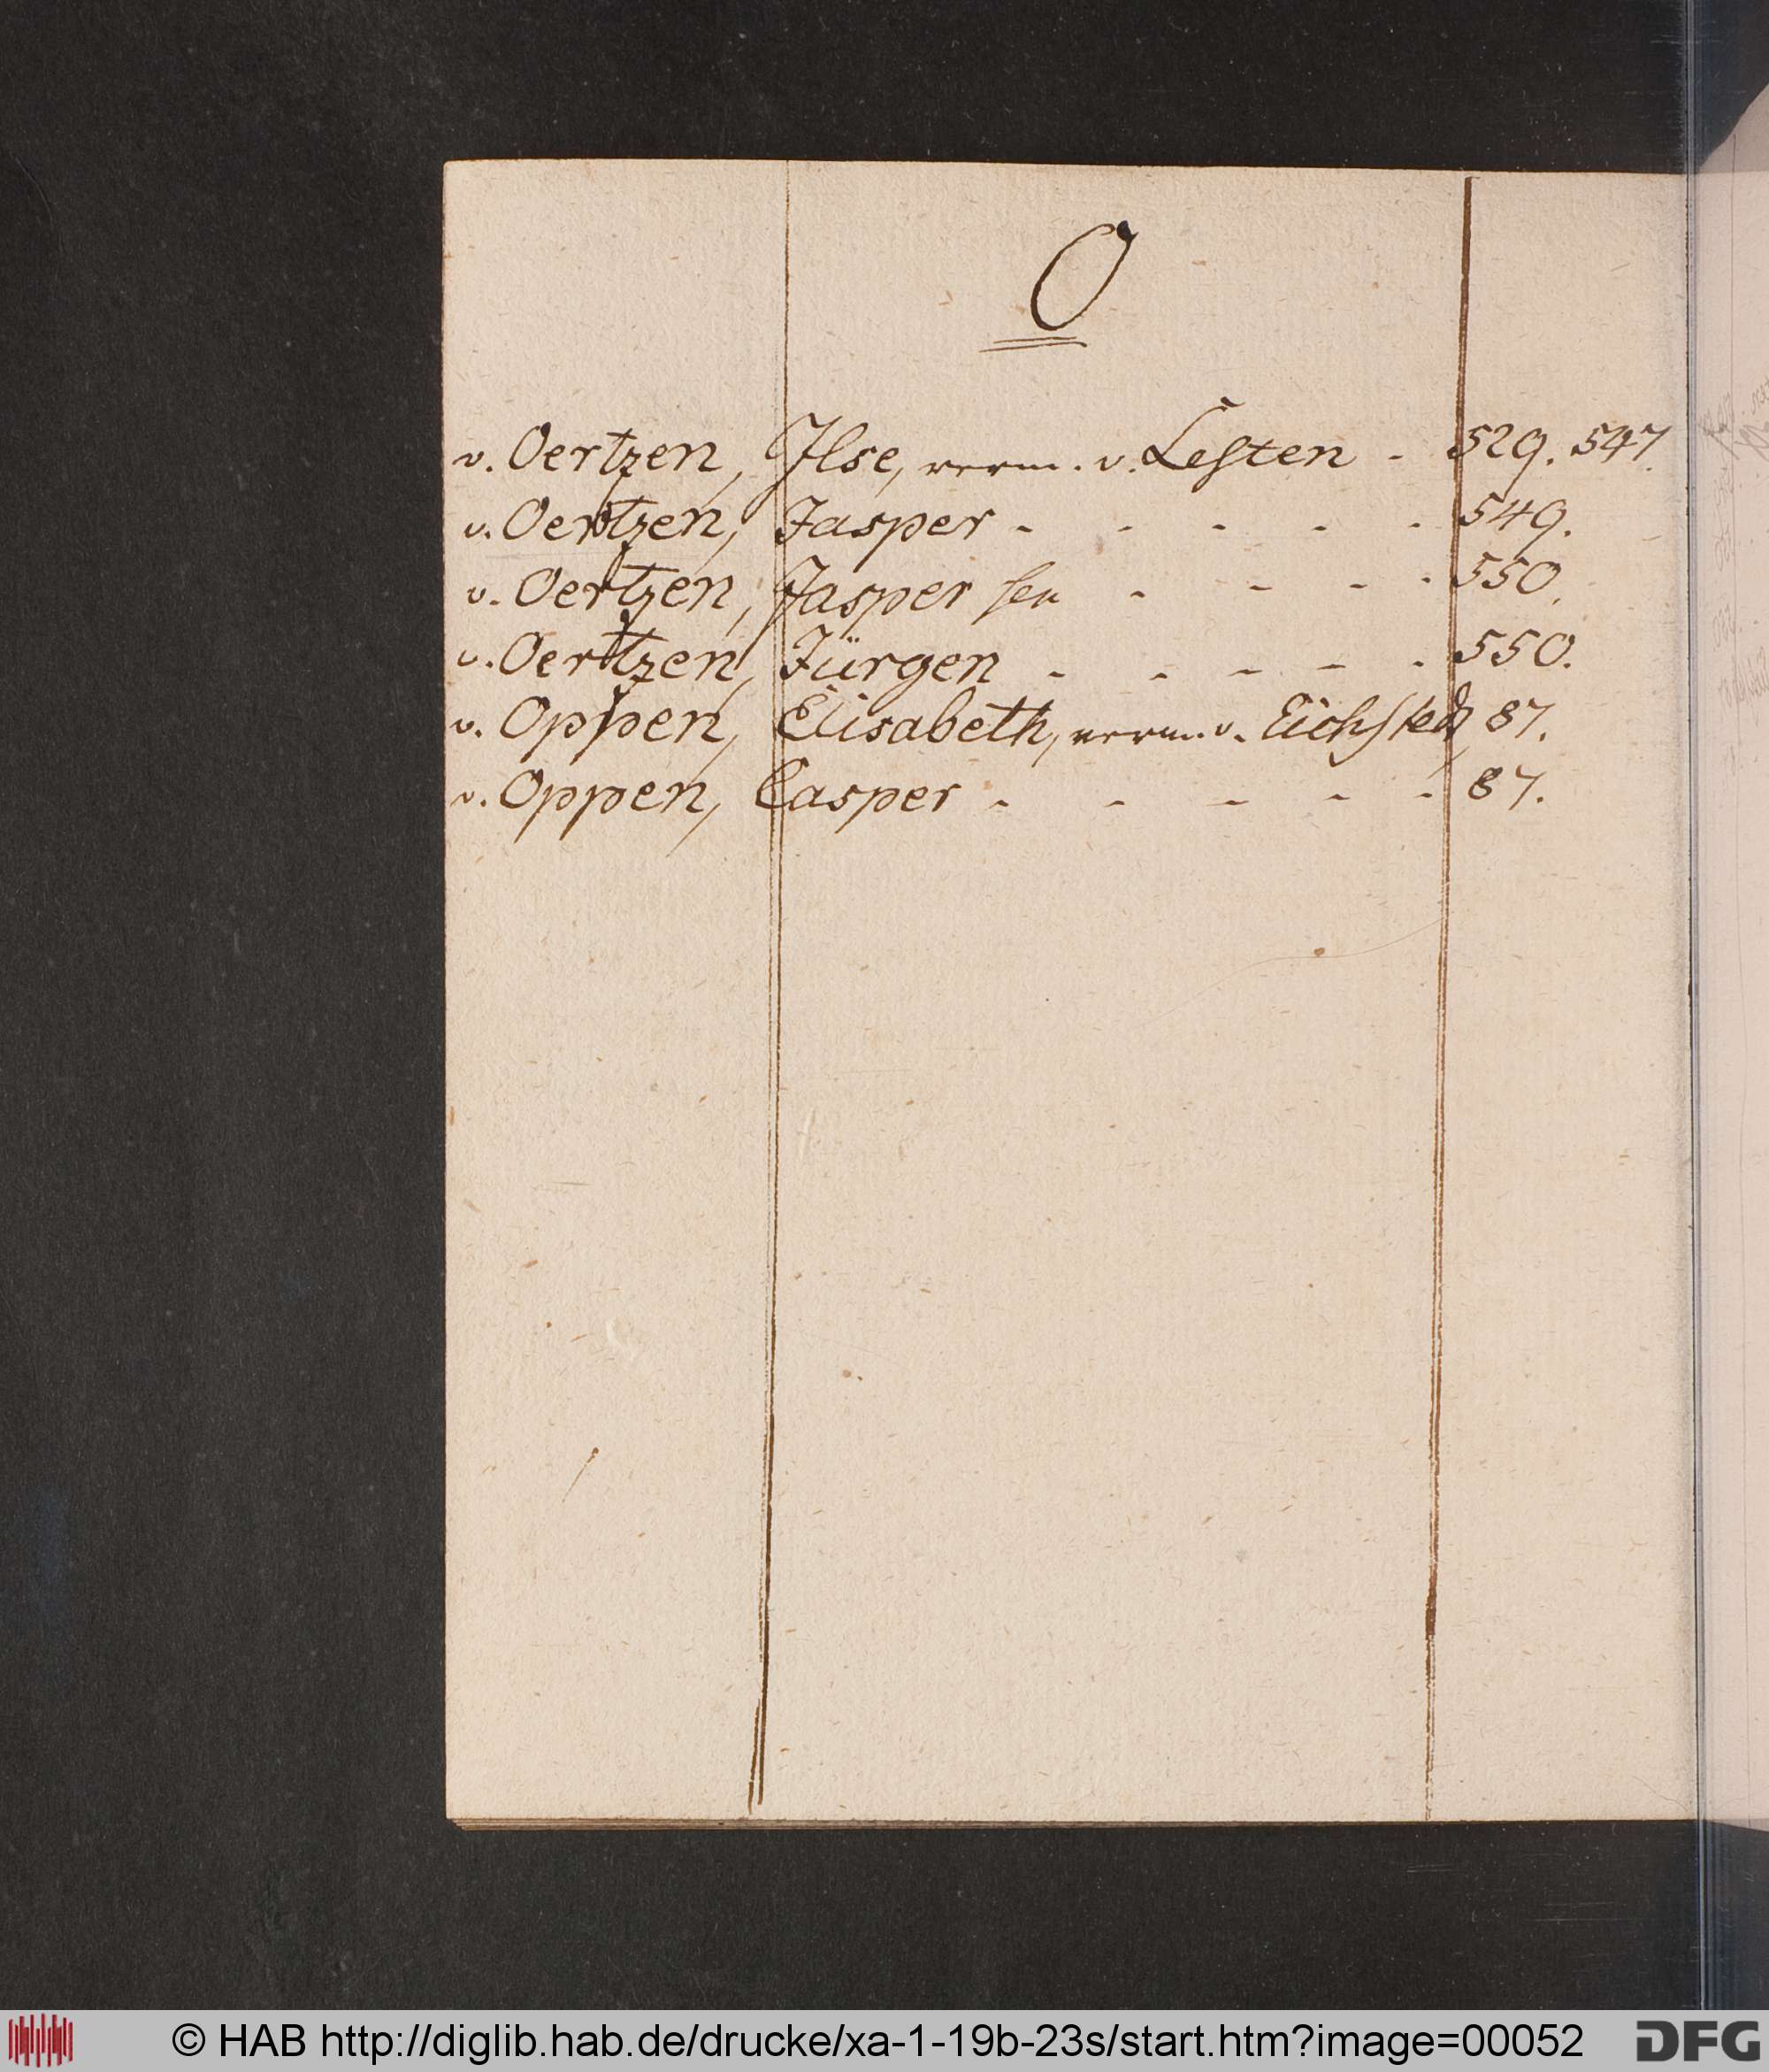 O
v. Oertzen, Ilse, verm. v. Lesten - 529. 547.
v. Oertzen, Jasper - - - - - 549.
v. Oertzen, Jasper sen - - - - 550.
v. Oertzen, Jürgen - - - - - 550.
v. Oppen, Elisabeth, verm. v. Eichsted, 87.
v. Oppen, Casper - - - - - 87.
© HAB http://diglib.hab.de/drucke/xa-1-19b-23s/start.htm?image=00052
DFG